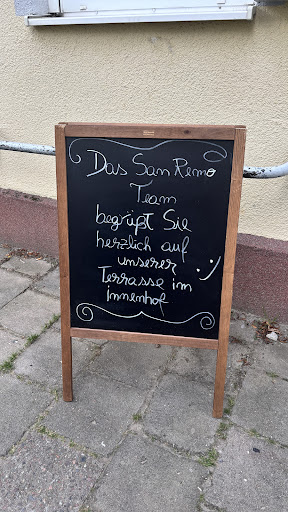 Das San Remo
Team
begrüßt Sie
herzlich auf
unserer :)
Terrasse im
innenhof